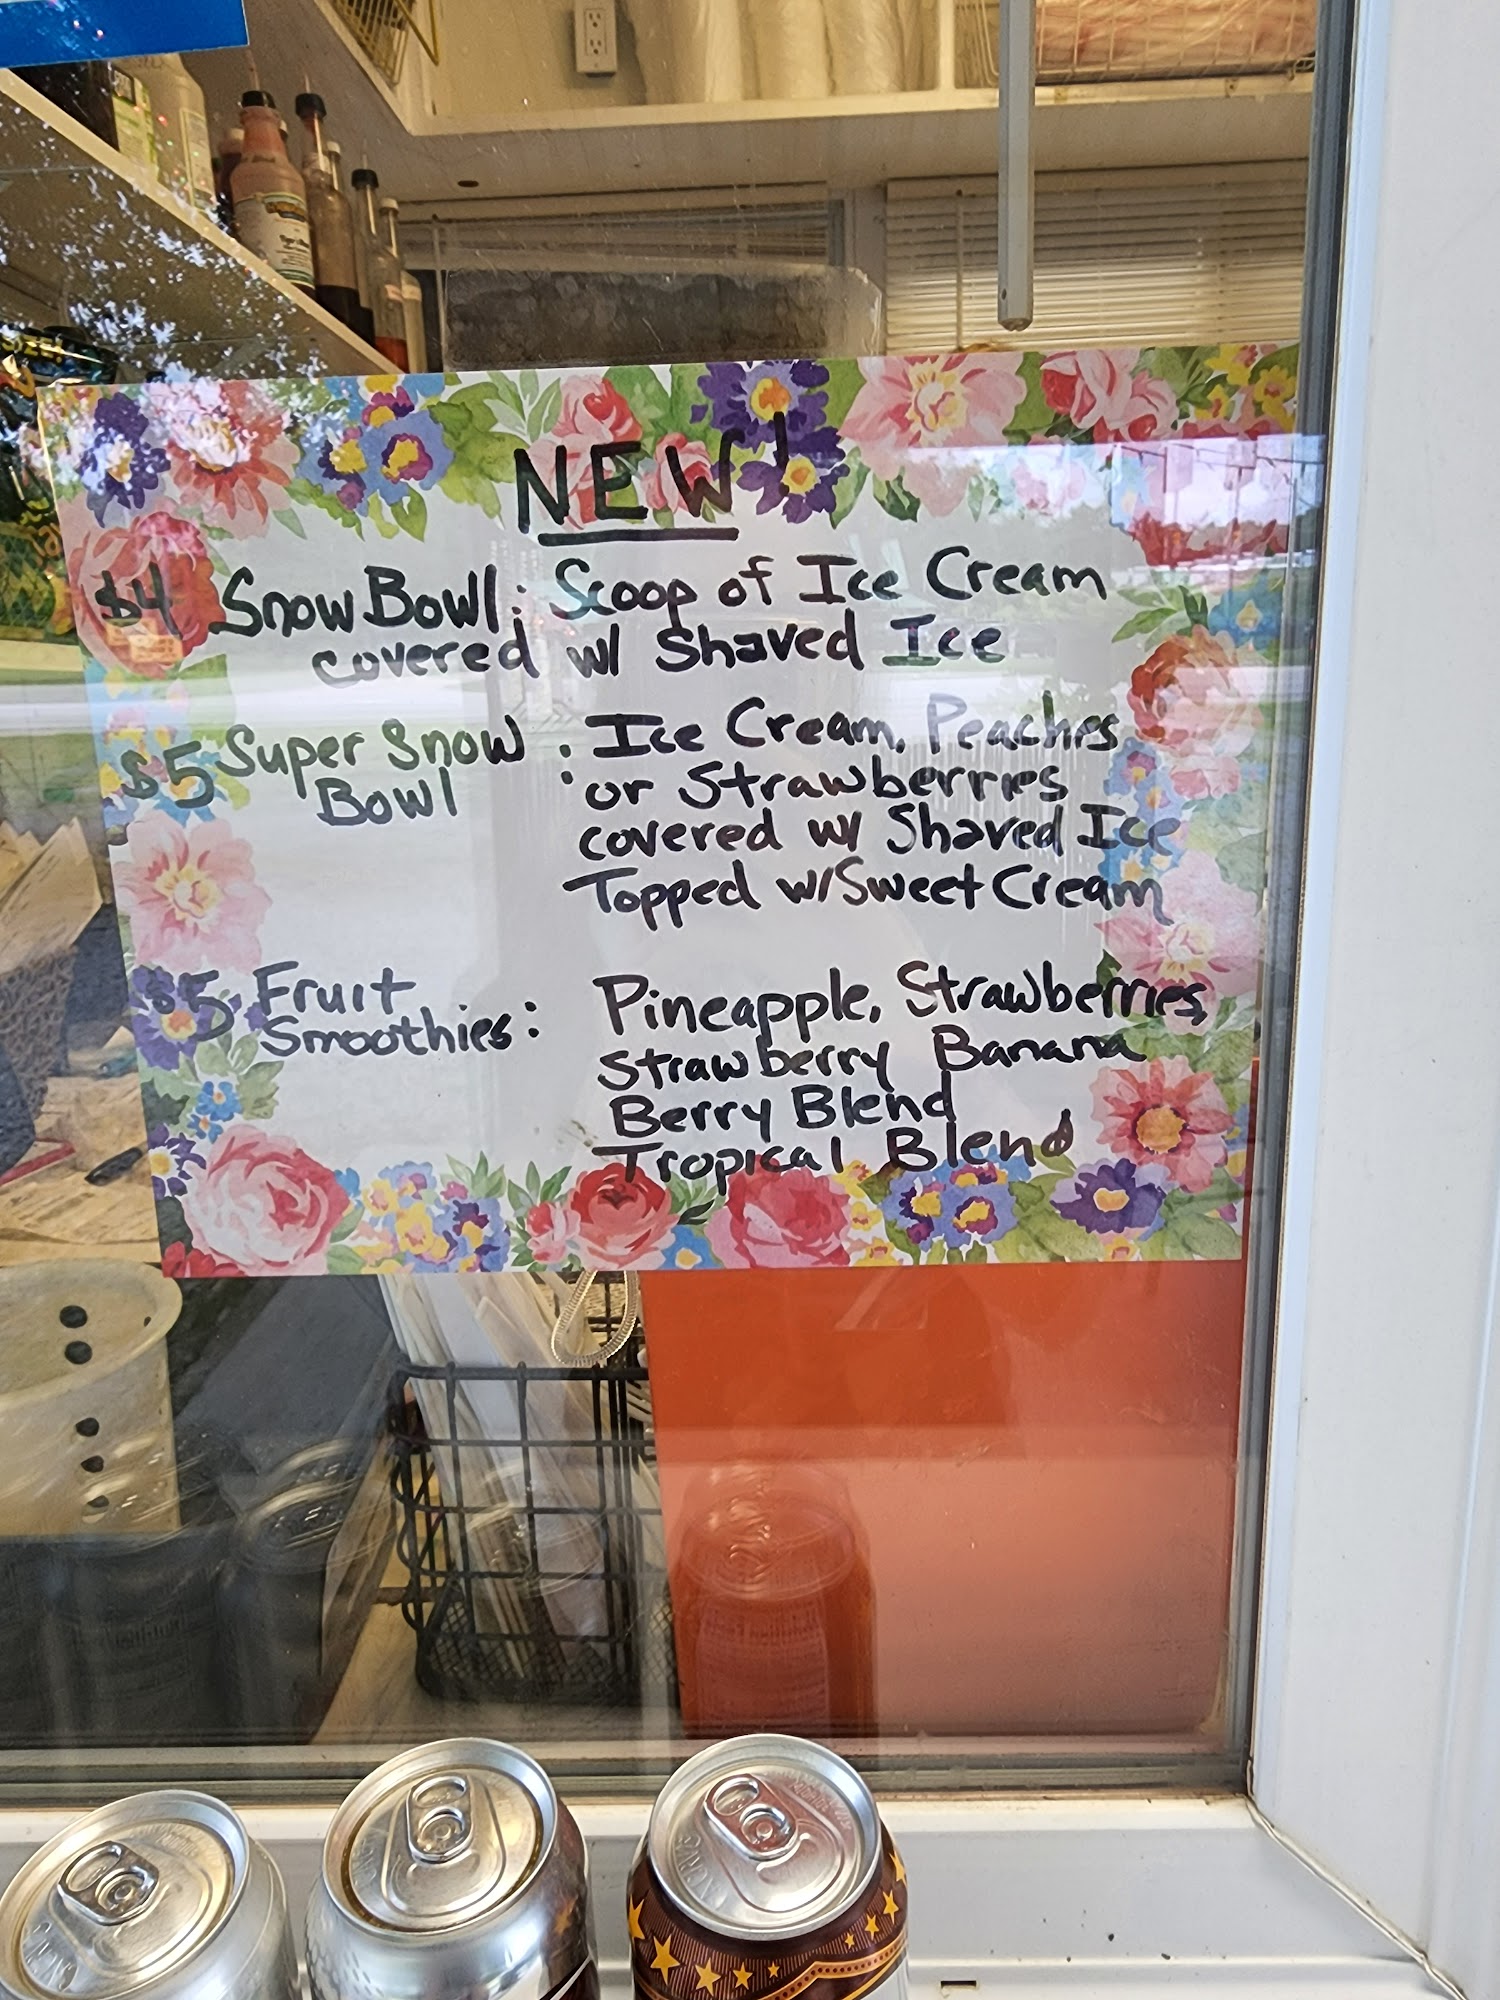 NEW!
$4 Snow Bowl: Scoop of Ice Cream
covered w/ Shaved Ice
$5 Super Snow Bowl : Ice Cream, Peaches
or Strawberries
covered w/ Shaved Ice
Topped w/ Sweet Cream
$5 Fruit Smoothies: Pineapple, Strawberries,
Strawberry Banana
Berry Blend
Tropical Blend